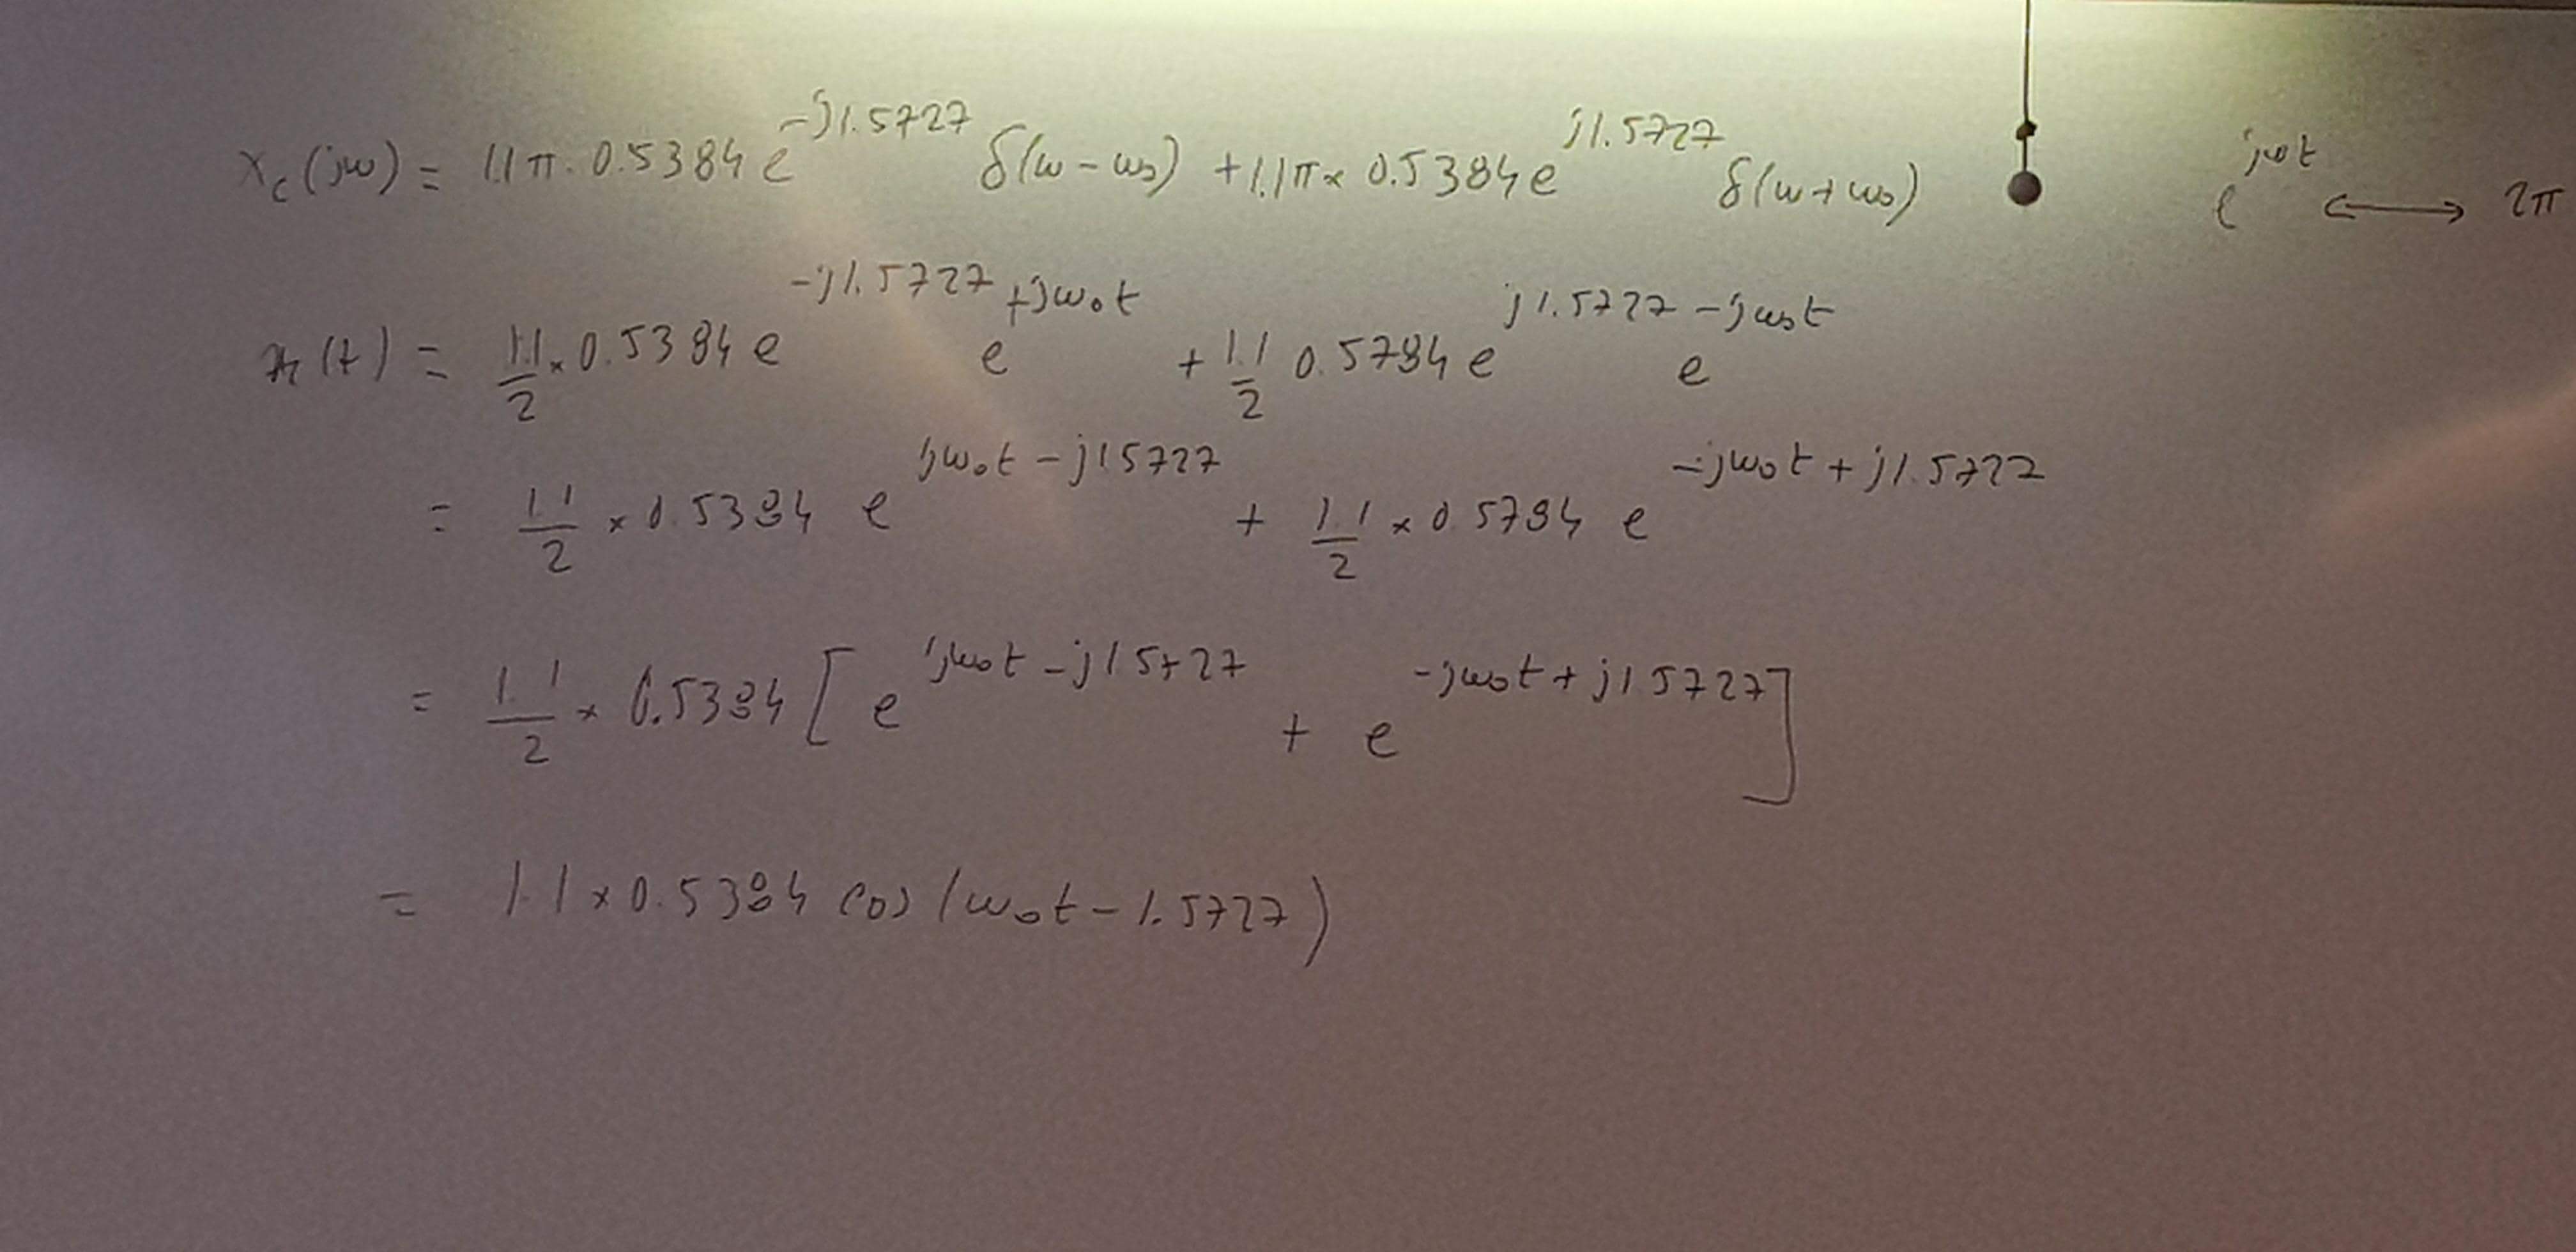 X_c(jω) = 1.1π · 0.5384 e^{-j1.5727} δ(ω - ω₀) + 1.1π × 0.5384 e^{j1.5727} δ(ω + ω₀)   e^{jω₀t} ⟷ 2π
x_r(t) = 1.1/2 × 0.5384 e^{-j1.5727} e^{+jω₀t} + 1.1/2 0.5784 e^{j1.5727} e^{-jω₀t}
= 1.1/2 × 0.5384 e^{jω₀t - j1.5727} + 1.1/2 × 0.5784 e^{-jω₀t + j1.5727}
= 1.1/2 × 0.5384 [ e^{jω₀t - j1.5727} + e^{-jω₀t + j1.5727} ]
= 1.1 × 0.5384 cos(ω₀t - 1.5727)